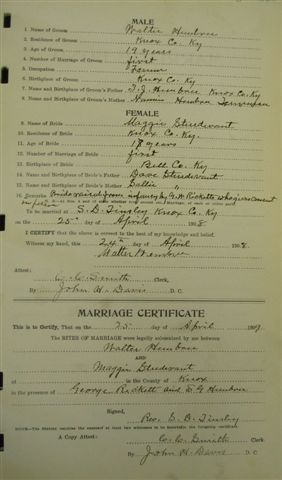 MALE
1. Name of Groom Walter Hembree
2. Residence of Groom Knox Co. Ky
3. Age of Groom 19 years
4. Number of Marriage of Groom first
5. Occupation Farmer
6. Birthplace of Groom Knox Co. Ky
7. Name and Birthplace of Groom's Father T. J. Hembree Knox Co. Ky
8. Name and Birthplace of Groom's Mother Hembree Tennessee
FEMALE
9. Name of Bride Maggie Sturdivant
10. Residence of Bride Knox Co. Ky.
11. Age of Bride 18 years
12. Number of Marriage of Bride first
13. Birthplace of Bride Bell Co. Ky
14. Name and Birthplace of Bride's Father Dave Sturdivant
15. Name and Birthplace of Bride's Mother Sallie "
16. Remarks Bride raised from infancy by G. W. Ricketts who gives consent
in person
To be married at S. D. Tinsley Knox Co. Ky
on the 25" day of April 1908
I CERTIFY that the above is correct to the best of my knowledge and belief.
Witness my hand, this 24th day of April 1908.
Walter Hembree
Attest:
W. C. Smith Clerk.
By John H. Davis D. C.
MARRIAGE CERTIFICATE
This is to Certify, That on the 25 day of April 190
The RITES OF MARRIAGE were legally solemnized by me between
Walter Hembree
AND
Maggie Sturdivant
at in the County of Knox
in the presence of George Rickett and Hembree
Signed,
Rev. S. D. Tinsley
A Copy Attest: W. C. Smith Clerk
By John H. Davis D. C.